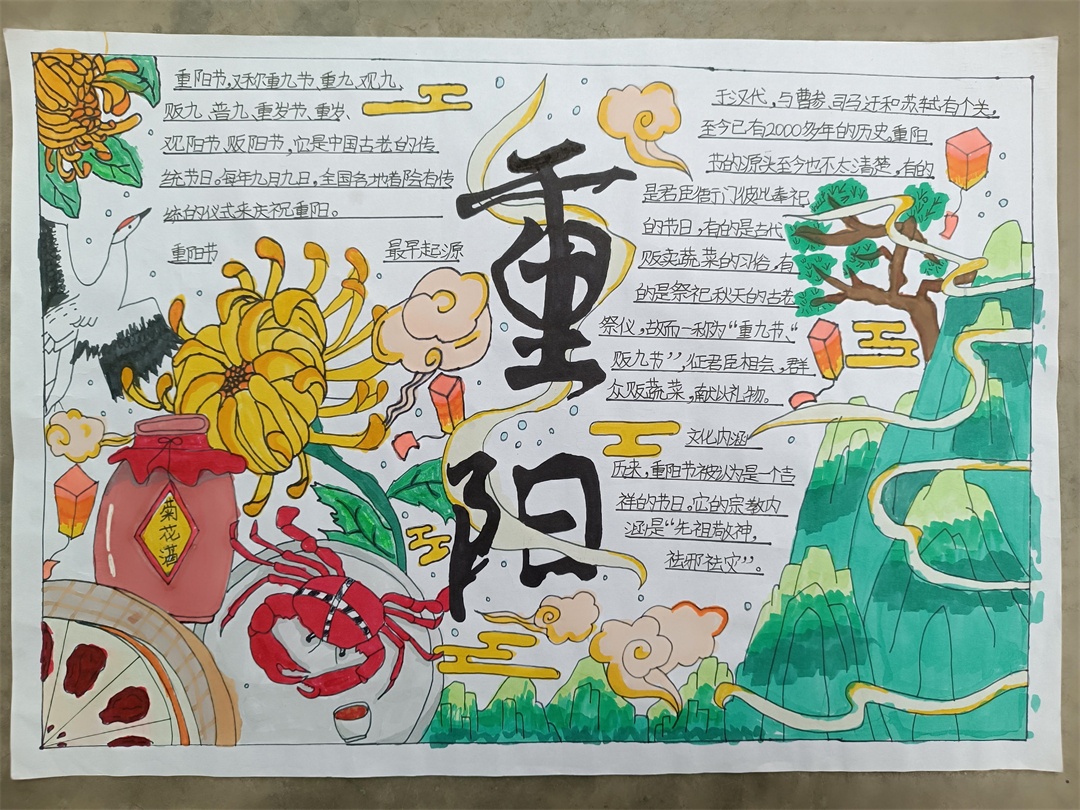 重阳节,又称重九节、重九、观九、
贩九、普九、重岁节、重岁、
观阳节、贩阳节,它是中国古老的传
统节日。每年九月九日,全国各地都会有传
统的仪式来庆祝重阳。
重阳节
最早起源
于汉代,与曹参、司马迁和苏轼有个关,
至今已有2000多年的历史。重阳
节的源头至今也不太清楚,有的
是君臣衙门彼此奉祀
的节日,有的是古代
贩卖蔬菜的习俗,有
的是祭祀秋天的古老
祭仪,故而一称为“重九节、“
贩九节”,征君臣相会,群
众贩蔬菜,献以礼物。
文化内涵
历来,重阳节被认为是一个吉
祥的节日。它的宗教内
涵是“先祖敬神,
祛邪祛灾”。
重
阳
菊花酒